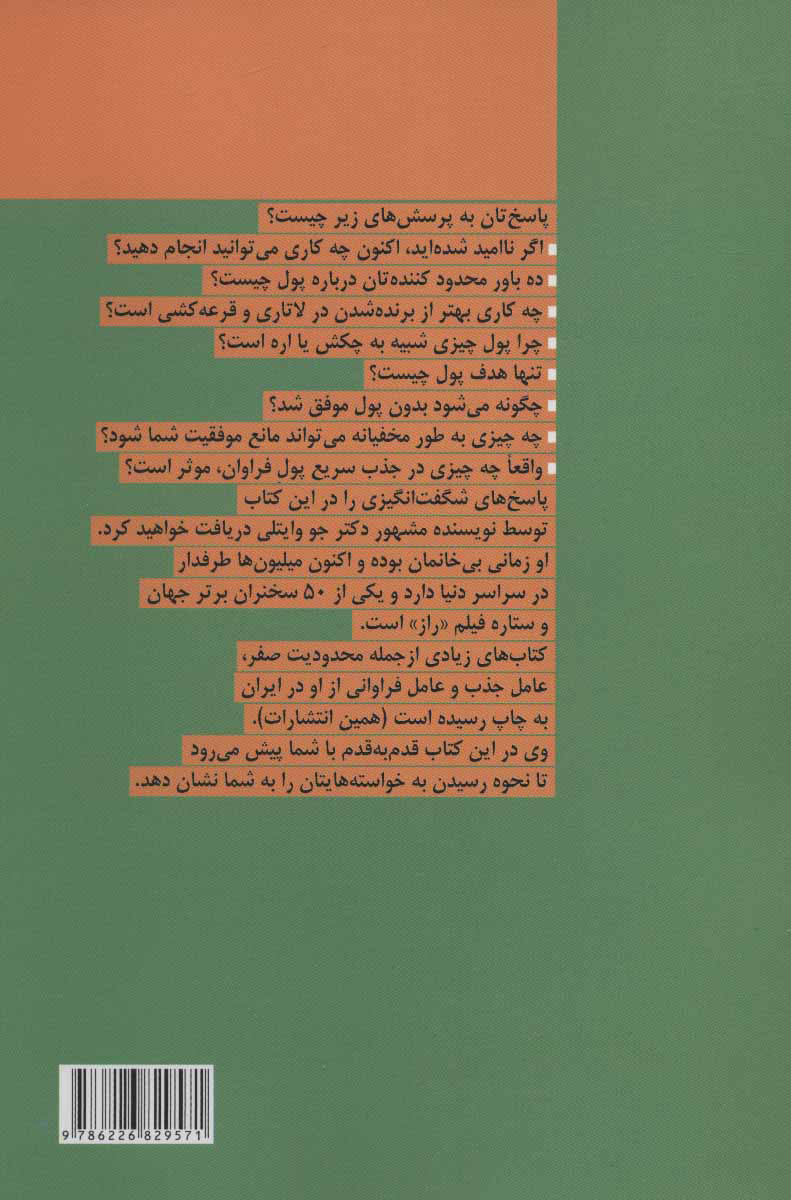 پاسخ‌تان به پرسش‌های زیر چیست؟
اگر ناامید شده‌اید، اکنون چه کاری می‌توانید انجام دهید؟
ده باور محدود کننده‌تان درباره پول چیست؟
چه کاری بهتر از برنده‌شدن در لاتاری و قرعه‌کشی است؟
چرا پول چیزی شبیه به چکش یا اره است؟
تنها هدف پول چیست؟
چگونه می‌شود بدون پول موفق شد؟
چه چیزی به طور مخفیانه می‌تواند مانع موفقیت شما شود؟
واقعاً چه چیزی در جذب سریع پولِ فراوان، موثر است؟
پاسخ‌های شگفت‌انگیزی را در این کتاب
توسط نویسنده مشهور دکتر جو وایتلی دریافت خواهید کرد.
او زمانی بی‌خانمان بوده و اکنون میلیون‌ها طرفدار
در سراسر دنیا دارد و یکی از ۵۰ سخنران برتر جهان
و ستاره فیلم «راز» است.
کتاب‌های زیادی ازجمله محدودیت صفر،
عامل جذب و عامل فراوانی از او در ایران
به چاپ رسیده است (همین انتشارات).
وی در این کتاب قدم‌به‌قدم با شما پیش می‌رود
تا نحوه رسیدن به خواسته‌هایتان را به شما نشان دهد.
9 786226 829571